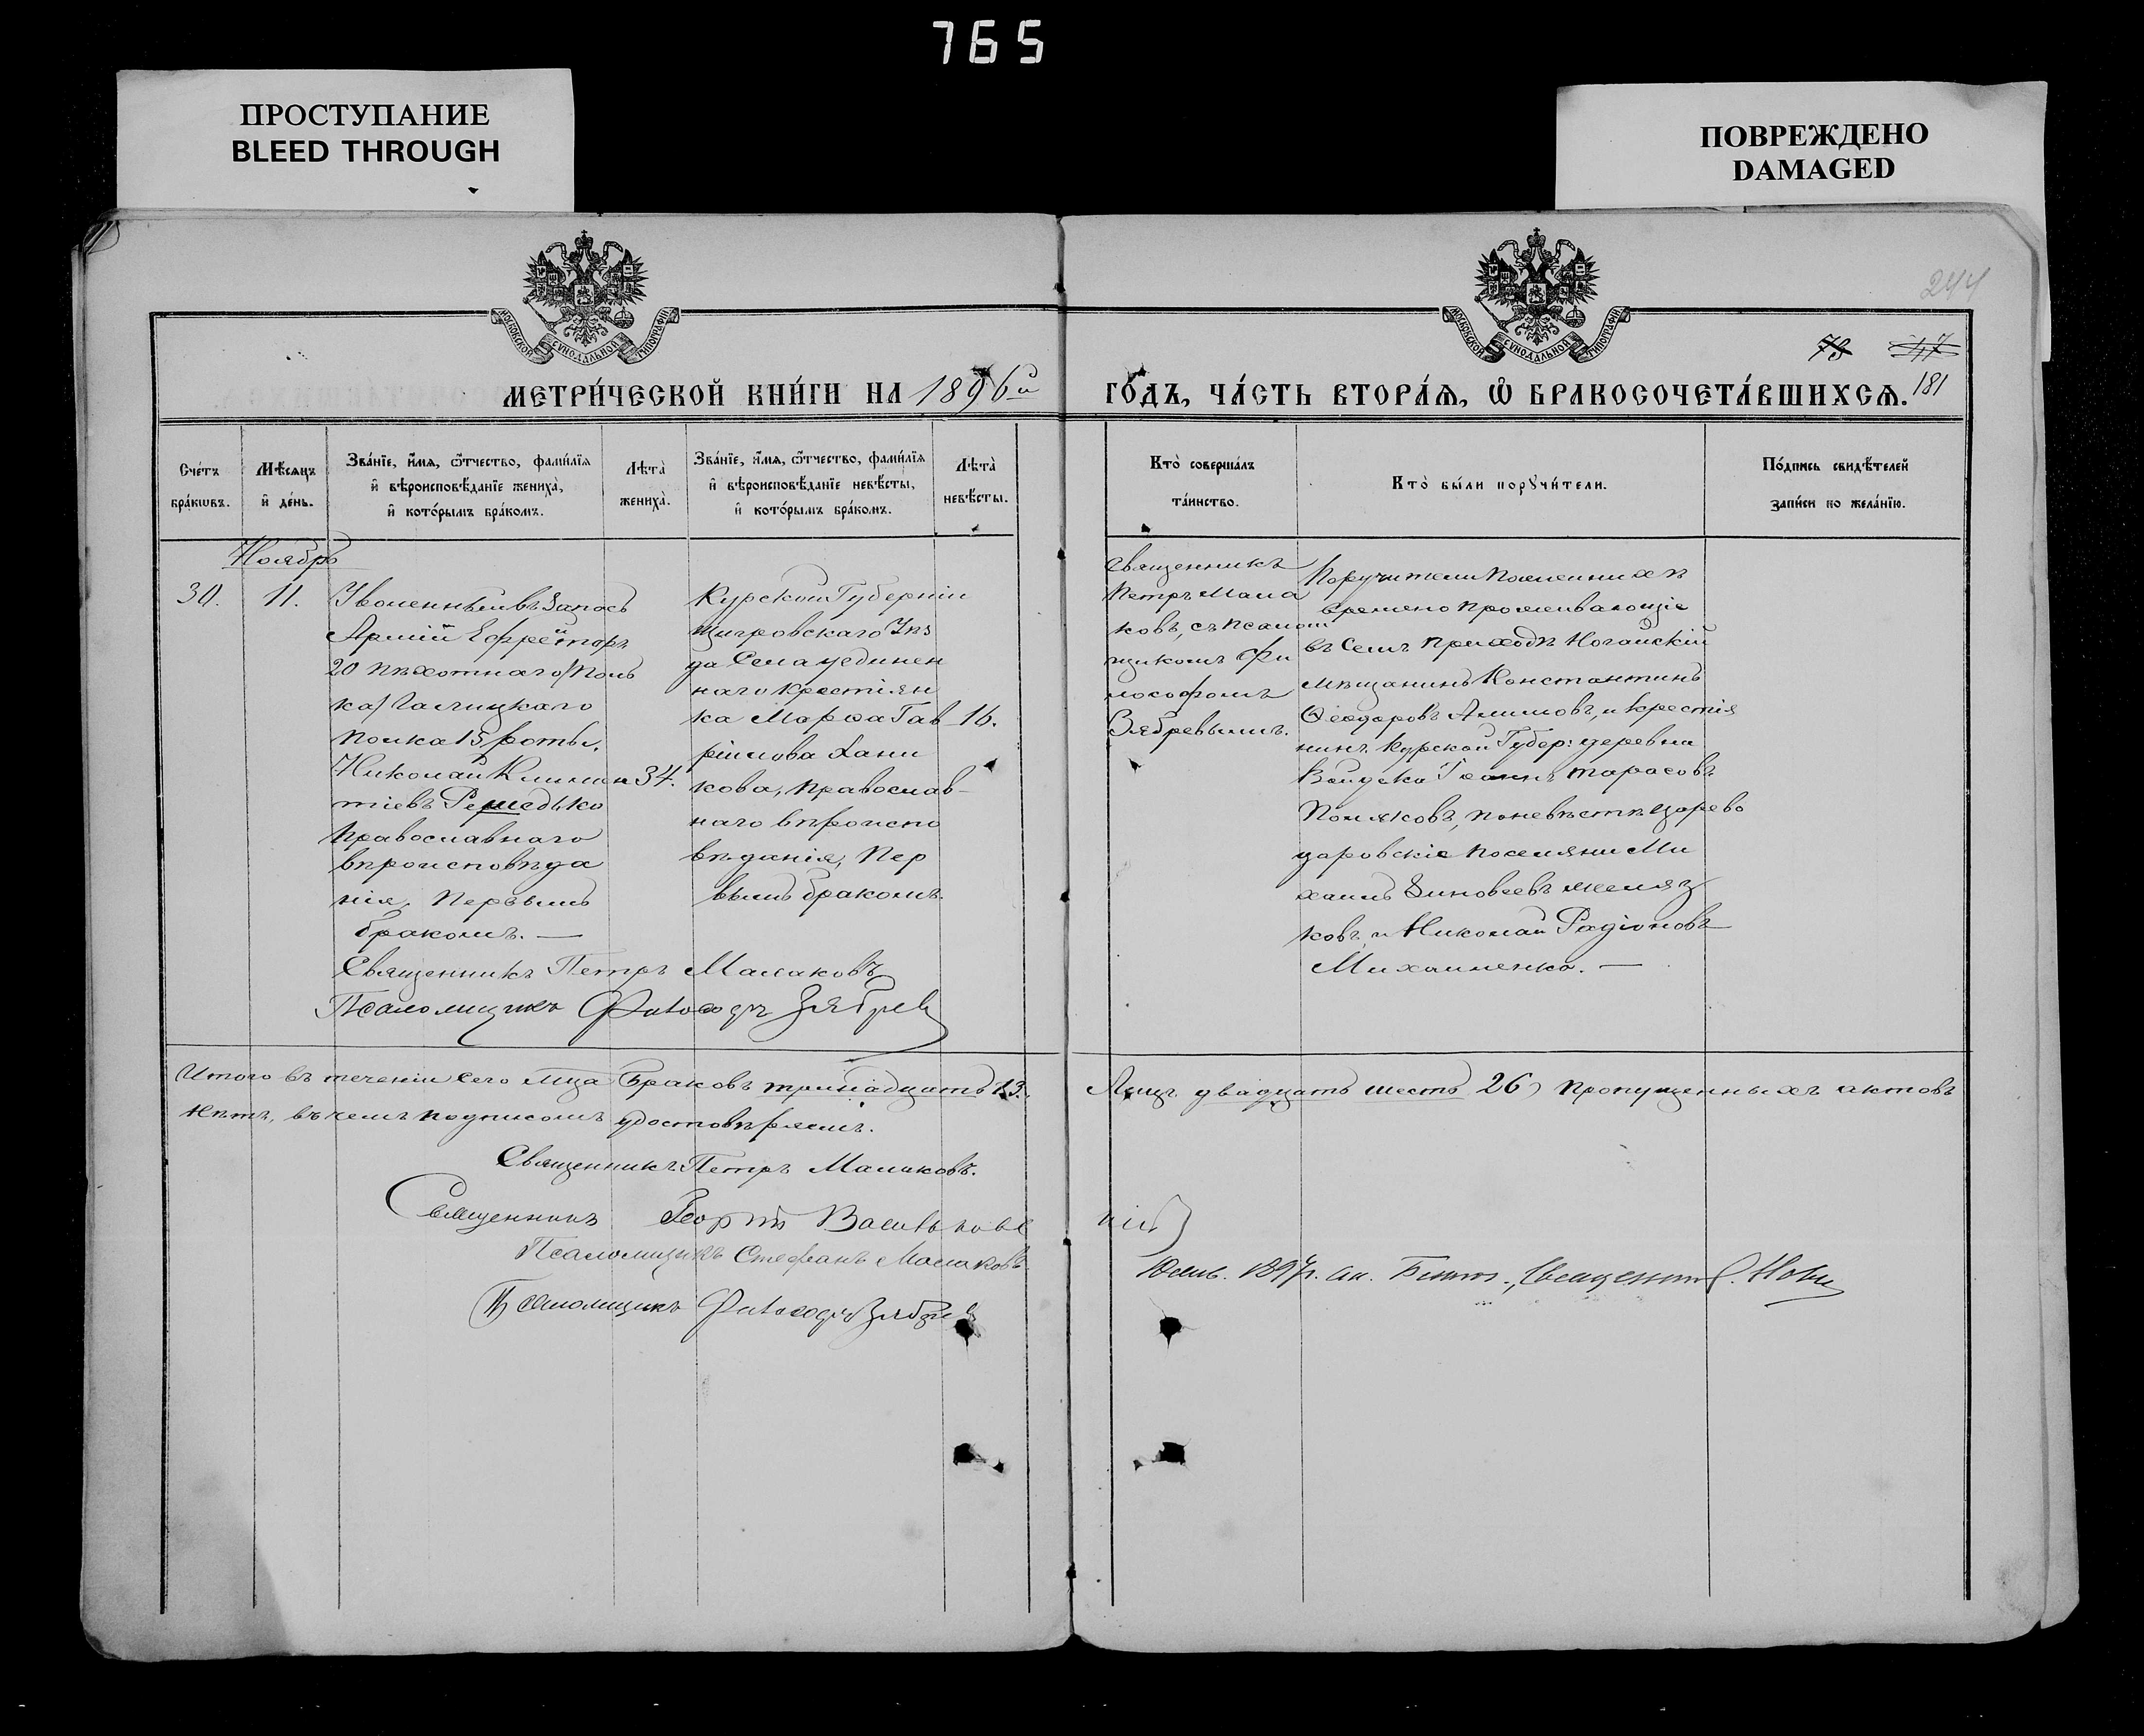 765
ПРОСТУПАНИЕ
BLEED THROUGH
ПОВРЕЖДЕНО
DAMAGED
244
МОСКОВСКОЙ СѴНОДАЛЬНОЙ ТИПОГРАФІИ
МОСКОВСКОЙ СѴНОДАЛЬНОЙ ТИПОГРАФІИ
МЕТРИ́ЧЕСКОЙ КНИ́ГИ НА 1896й
ГО́ДЪ, ЧА́СТЬ ВТОРА́Ѧ, Ѡ҆ БРАКОСОЧЕТА́ВШИХСѦ. 181
Сче́тъ бра́кѡвъ.
Мѣ́сѧцъ и҆ де́нь.
Зва́нїе, и҆́мѧ, ѻ҆́тчество, фами́лїѧ и҆ вѣроисповѣ́данїе жениха̀, и҆ кото́рымъ бра́комъ.
Лѣта̀ жениха̀.
Зва́нїе, и҆́мѧ, ѻ҆́тчество, фами́лїѧ и҆ вѣроисповѣ́данїе невѣ́сты, и҆ кото́рымъ бра́комъ.
Лѣта̀ невѣ́сты.
Кто̀ соверша́лъ та́инство.
Кто̀ бы́ли порꙋчи́тели.
По́дпись свидѣ́телей за́писи по жела́нїю.
Ноябрь
30. 11.
Уволенный въ Запасъ
Арміи Ефрейторъ
20 пѣхотнаго/Поль
ка/Галицкаго
полка 15 роты,
Николай Климен 34.
тіевъ Решедько
православнаго
вѣроисповѣда
нія, первымъ
бракомъ. —
Курской Губерніи
Щигровскаго Уѣз
да Села уединен
наго крестьян
ка Марѳа Гав 16.
ріилова Хани
кова, православ-
наго вѣроиспо
вѣданія, пер
вымъ бракомъ.
Священникъ Петръ Малаковъ
Псаломщикъ Зябрев
Священникъ
Петръ Мала
ковъ, съ псалом
щикомъ Фи
лософомъ
Зябревымъ.
Поручители по женихѣ
временно проживающіе
въ семъ приходѣ Ногайскій
мѣщанинъ Константинъ
Ѳеодоровъ и крестья
нинъ Курской Губер: деревни
Іоаннъ Тарасовъ
Поляковъ, по невѣстѣ царево
даровскіе поселяни Ми
хаилъ Зиновеевъ Желяз
ковъ и Николай Радіоновъ
Михаиленко. —
Итого въ теченіи сего м-ца Браковъ тринадцать 13.
Лицъ двадцать шесть 26) пропущенныхъ актовъ
нѣтъ, въ чемъ подписомъ удостовѣряемъ.
Священникъ Петръ Малаковъ.
Священникъ Георгій
Псаломщикъ Стефанъ Малаковъ
Псаломщикъ Зябрев